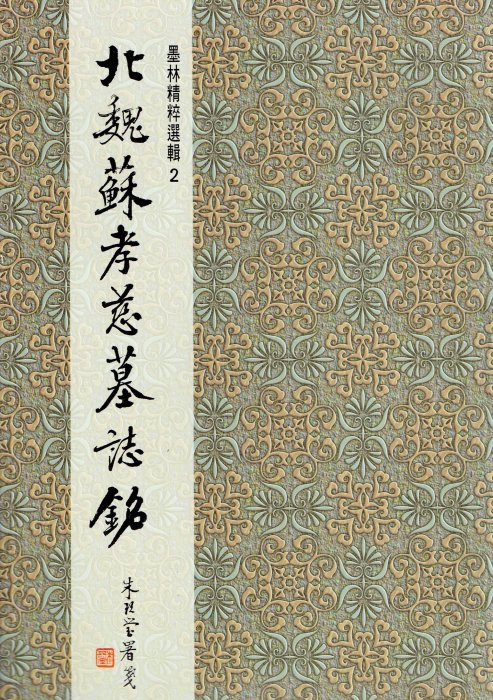 墨林精粹選輯2
北魏蘇孝慈墓誌銘
朱玖瑩署箋